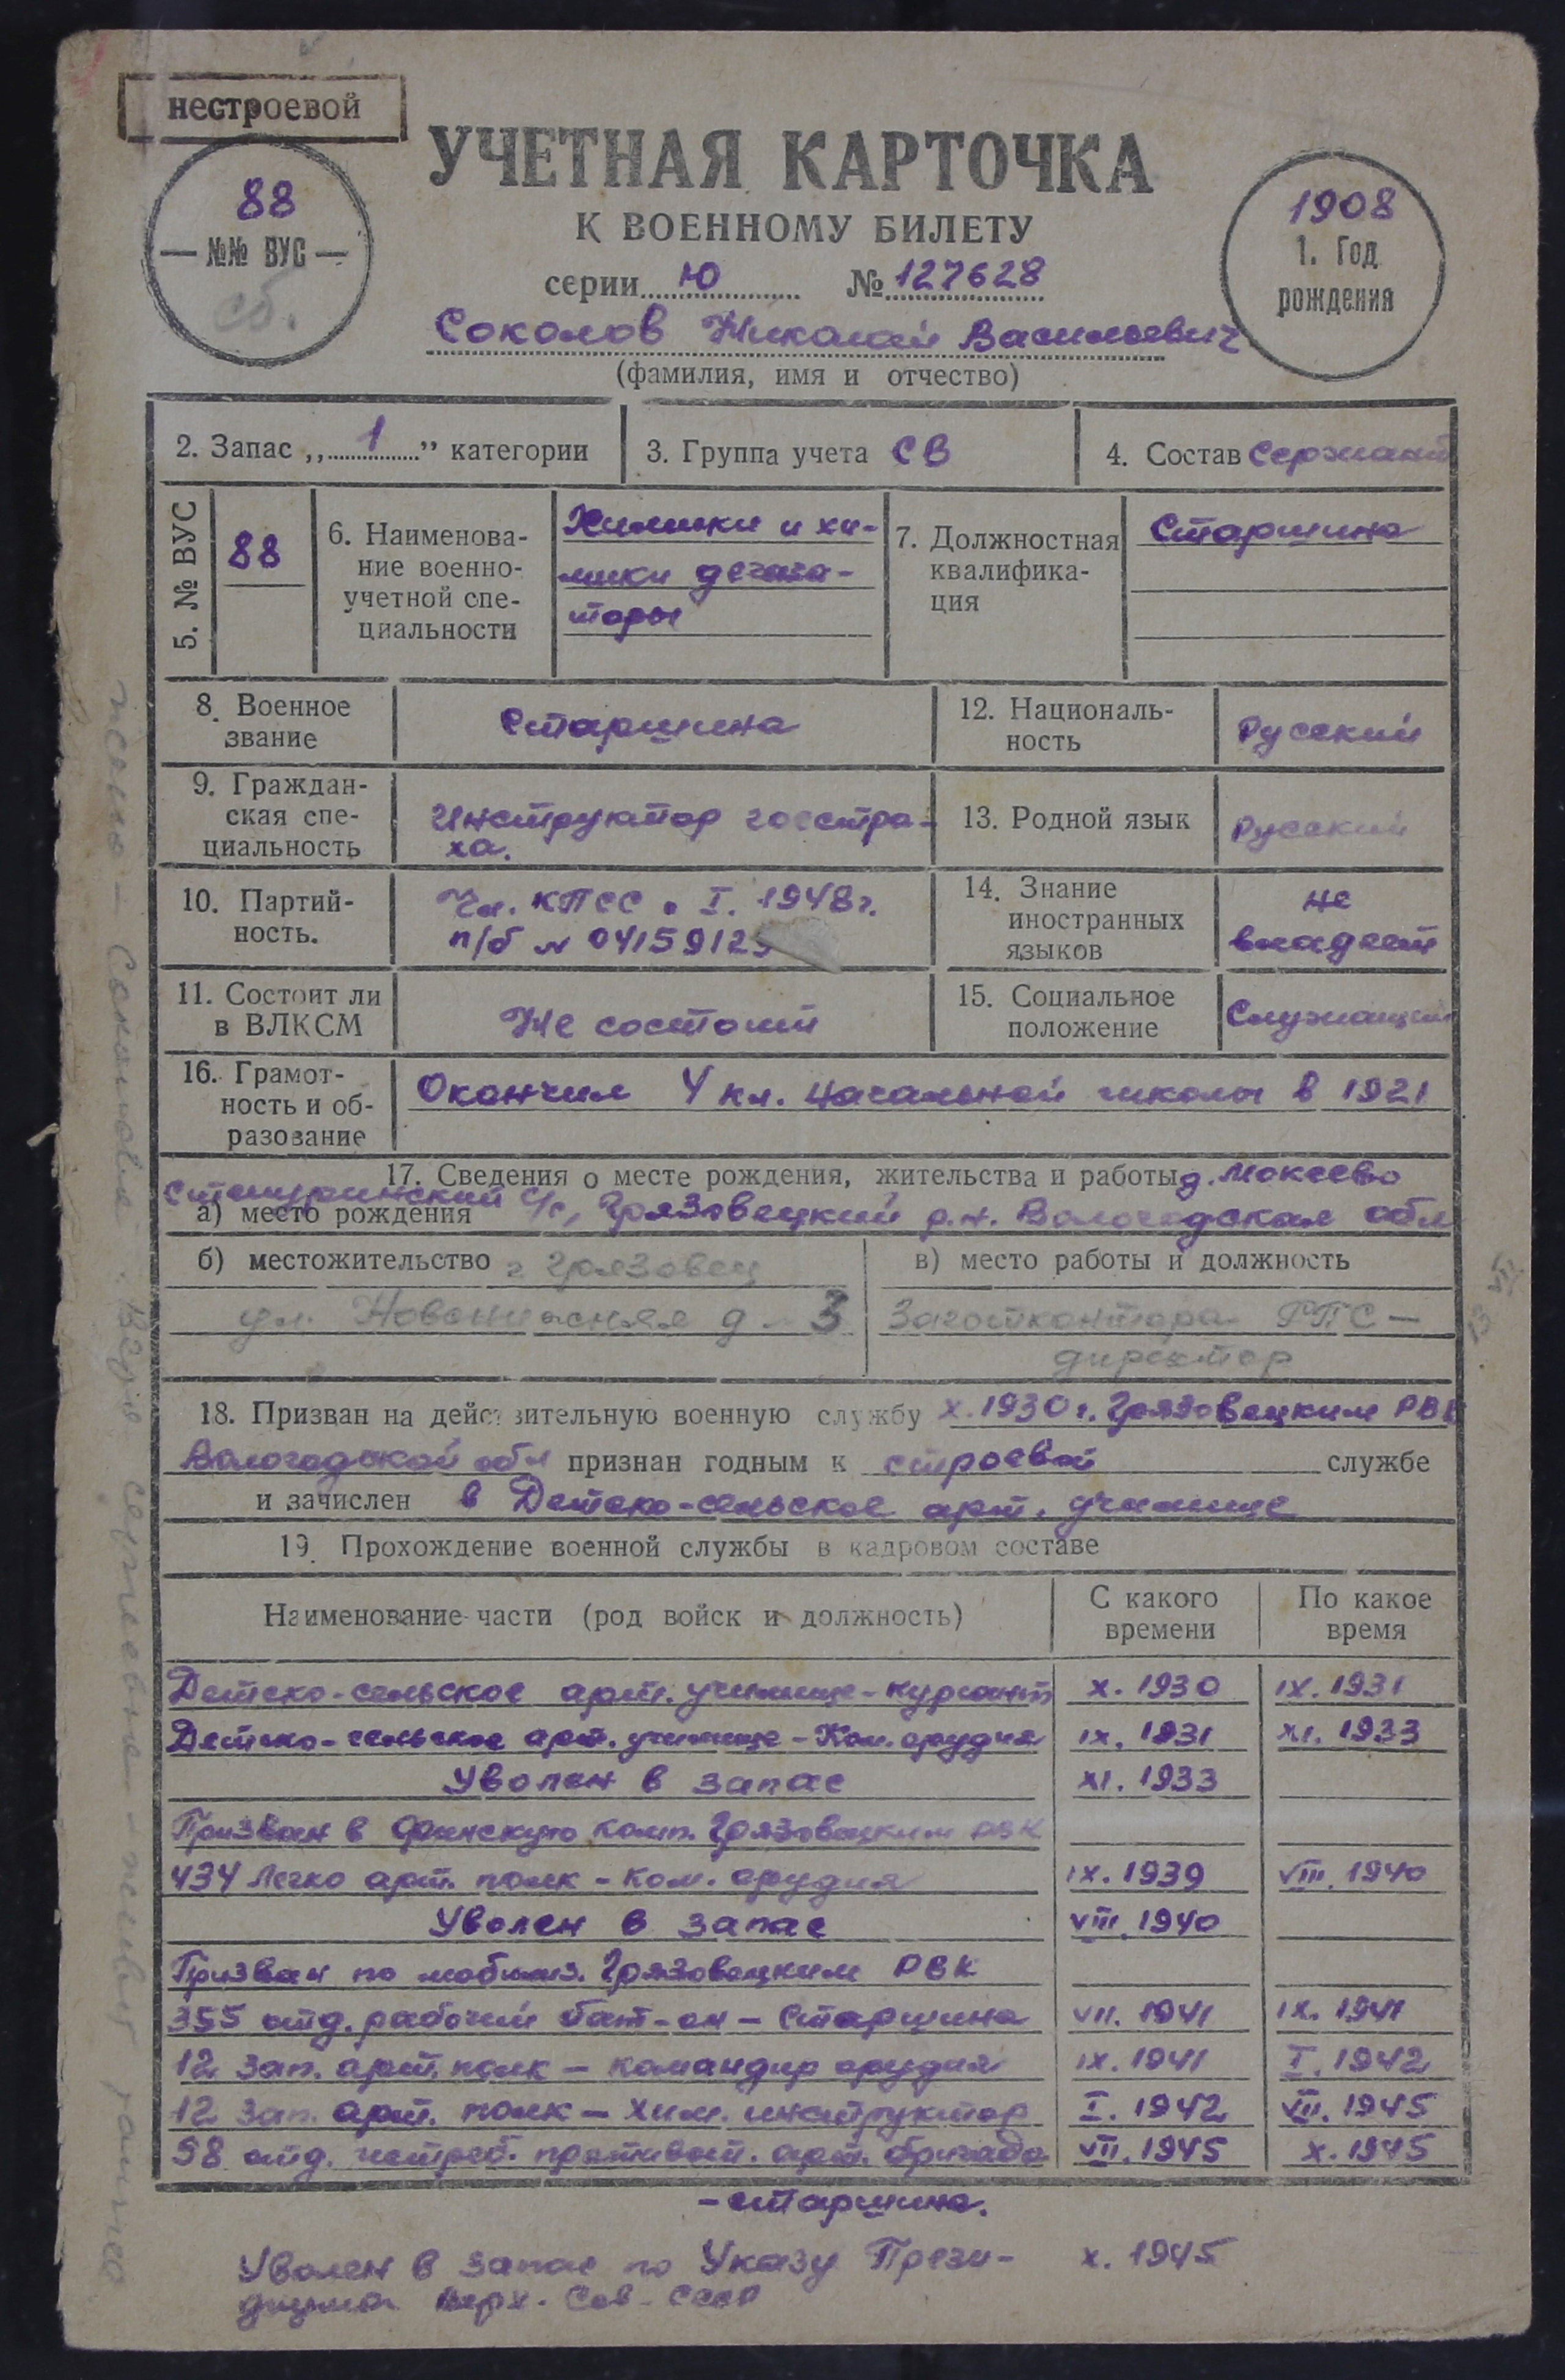 нестроевой
88
— №№ ВУС —
сб.
УЧЕТНАЯ КАРТОЧКА
К ВОЕННОМУ БИЛЕТУ
серии Ю № 127628
Соколов Николай Васильевич
(фамилия, имя и отчество)
1908
1. Год
рождения
2. Запас „1” категории
3. Группа учета СВ
4. Состав Сержант
5. № ВУС
88
6. Наименова-
ние военно-
учетной спе-
циальности
Химики и хи-
мики дегаза-
торы
7. Должностная
квалифика-
ция
Старшина
8. Военное
звание
Старшина
12. Националь-
ность
Русский
9. Граждан-
ская спе-
циальность
Инструктор госстра-
ха.
13. Родной язык
Русский
10. Партий-
ность.
Чл. КПСС с I. 1948 г.
п/б № 0415912
14. Знание
иностранных
языков
не
владеет
11. Состоит ли
в ВЛКСМ
Не состоит
15. Социальное
положение
Служащий
16. Грамот-
ность и об-
разование
Окончил 4 кл. начальной школы в 1921
17. Сведения о месте рождения, жительства и работы д. Мокеево
а) место рождения
с/с, Грязовецкий р.н. Вологодская обл
б) местожительство г Грязовец
ул. д 3
в) место работы и должность
Заготконтора РПС —
директор
18. Призван на действительную военную службу X. 1930 г. Грязовецким РВК
Вологодской обл признан годным к строевой службе
и зачислен в Детско-сельское арт. училище
19. Прохождение военной службы в кадровом составе
Наименование части (род войск и должность)
С какого
времени
По какое
время
Детско-сельское арт. училище - курсант X. 1930 IX. 1931
Детско-сельское арт. училище - Ком. орудия IX. 1931 XI. 1933
Уволен в запас XI. 1933
Призван в финскую комп. Грязовецким РВК
434 Легко арт. полк - ком. орудия IX. 1939 VIII. 1940
Уволен в запас VIII. 1940
Призван по мобилиз. Грязовецким РВК
355 отд. рабочий бат-он - Старшина VII. 1941 IX. 1941
12 Зап. арт. полк - командир орудия IX. 1941 I. 1942
12 Зап. арт. полк - хим. инструктор I. 1942 VII. 1945
98 отд. истреб. противот. арт. бригада VII. 1945 X. 1945
- старшина.
Уволен в запас по Указу Прези- X. 1945
диума Верх. Сов. СССР